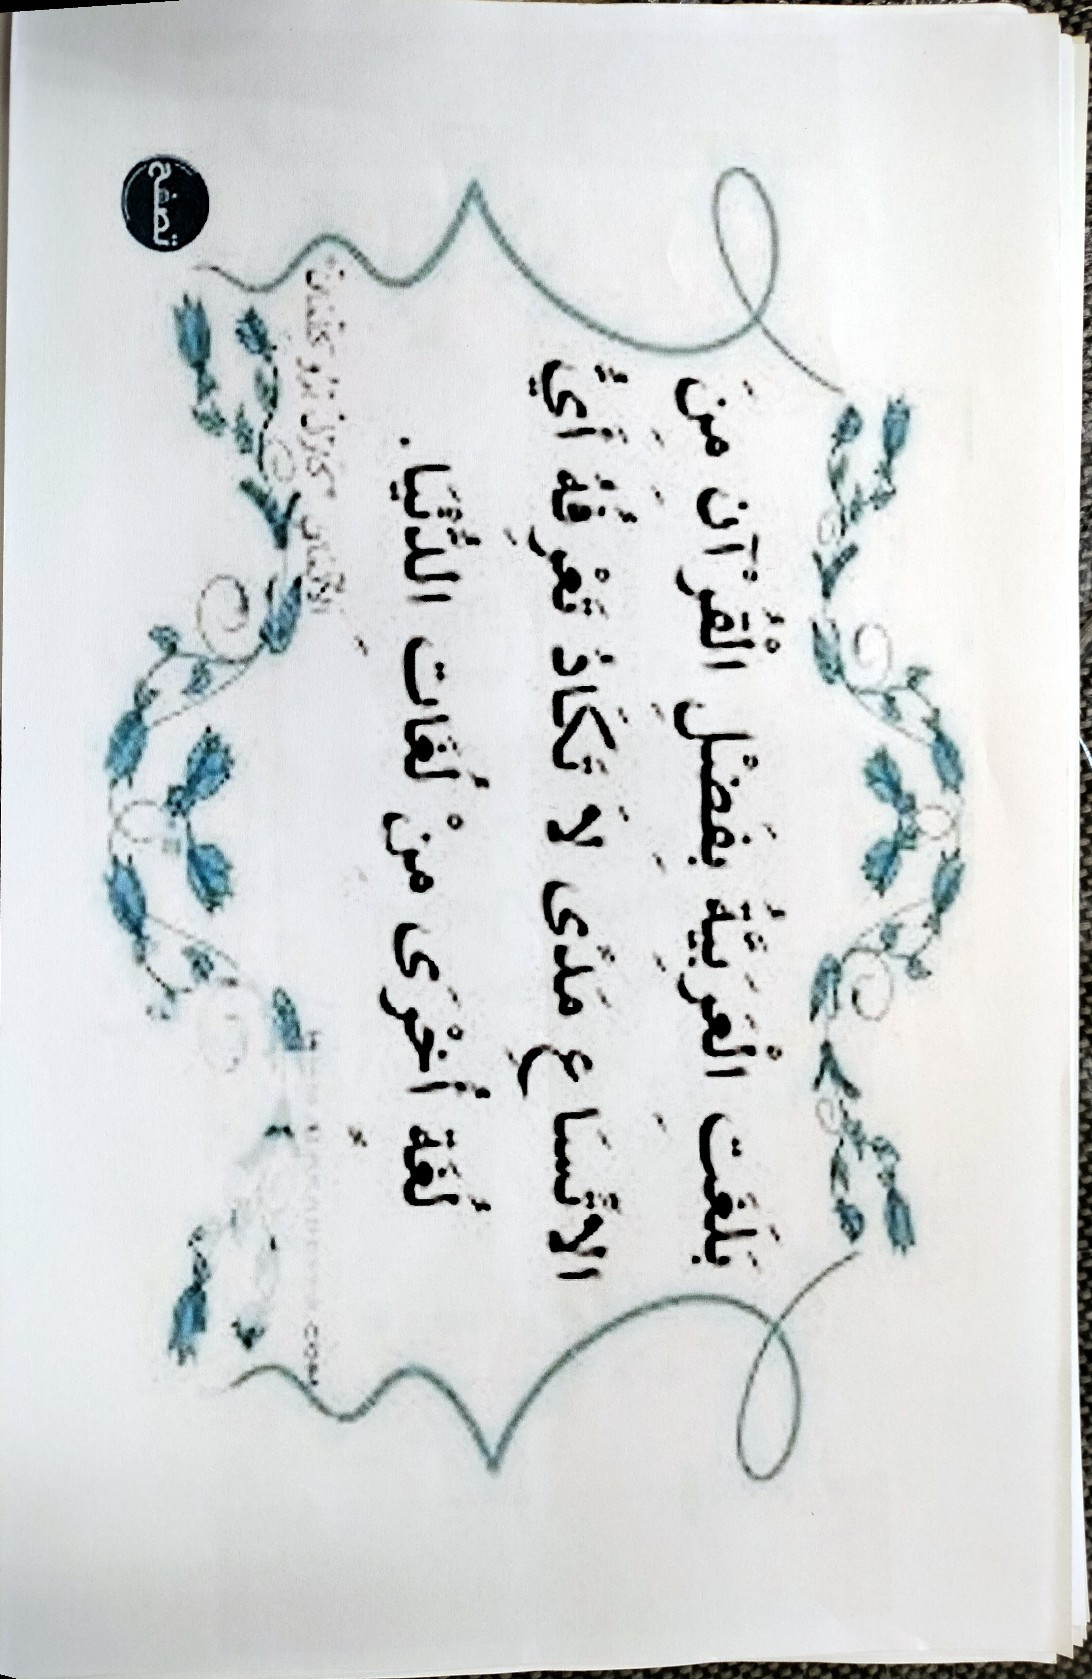 بَلَغَتِ الْعَرَبِيَّةُ بِفَضْلِ الْقُرْآنِ مِنَ
الاتِّسَاعِ مَدَى لَا تَكَادُ تَعْرِفُهُ أَيُّ
لُغَةٍ أُخْرَى مِنْ لُغَاتِ الدُّنْيَا.
الألماني "كارل بروكلمان"
تصفح